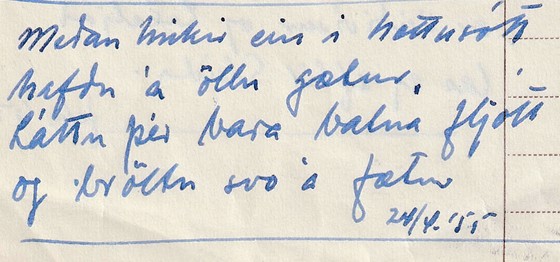 Meðan hinkir ein í hettusótt
hafðu á öllu gætur.
Láttu þér bara batna fljótt
og bröltu svo á fætur
24/4. '55